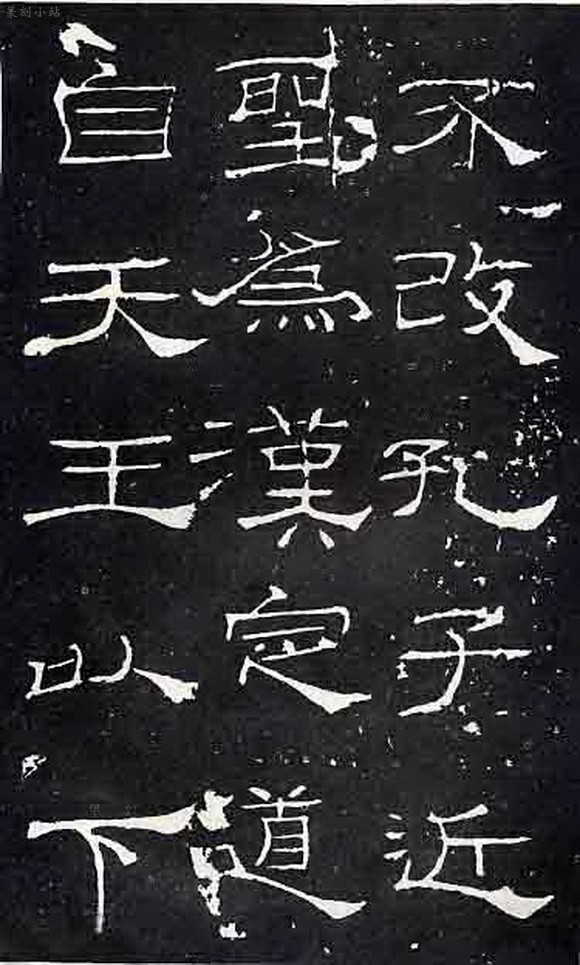 不改孔子近
聖為漢定道
自天王以下
篆刻小站